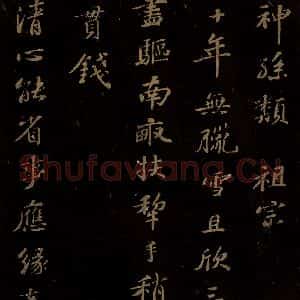 神孫類祖宗
十年無臘雪且欣三
盡驅南畝扶犁手稍
貫錢
清心能省事應緣
Shufawang.CN